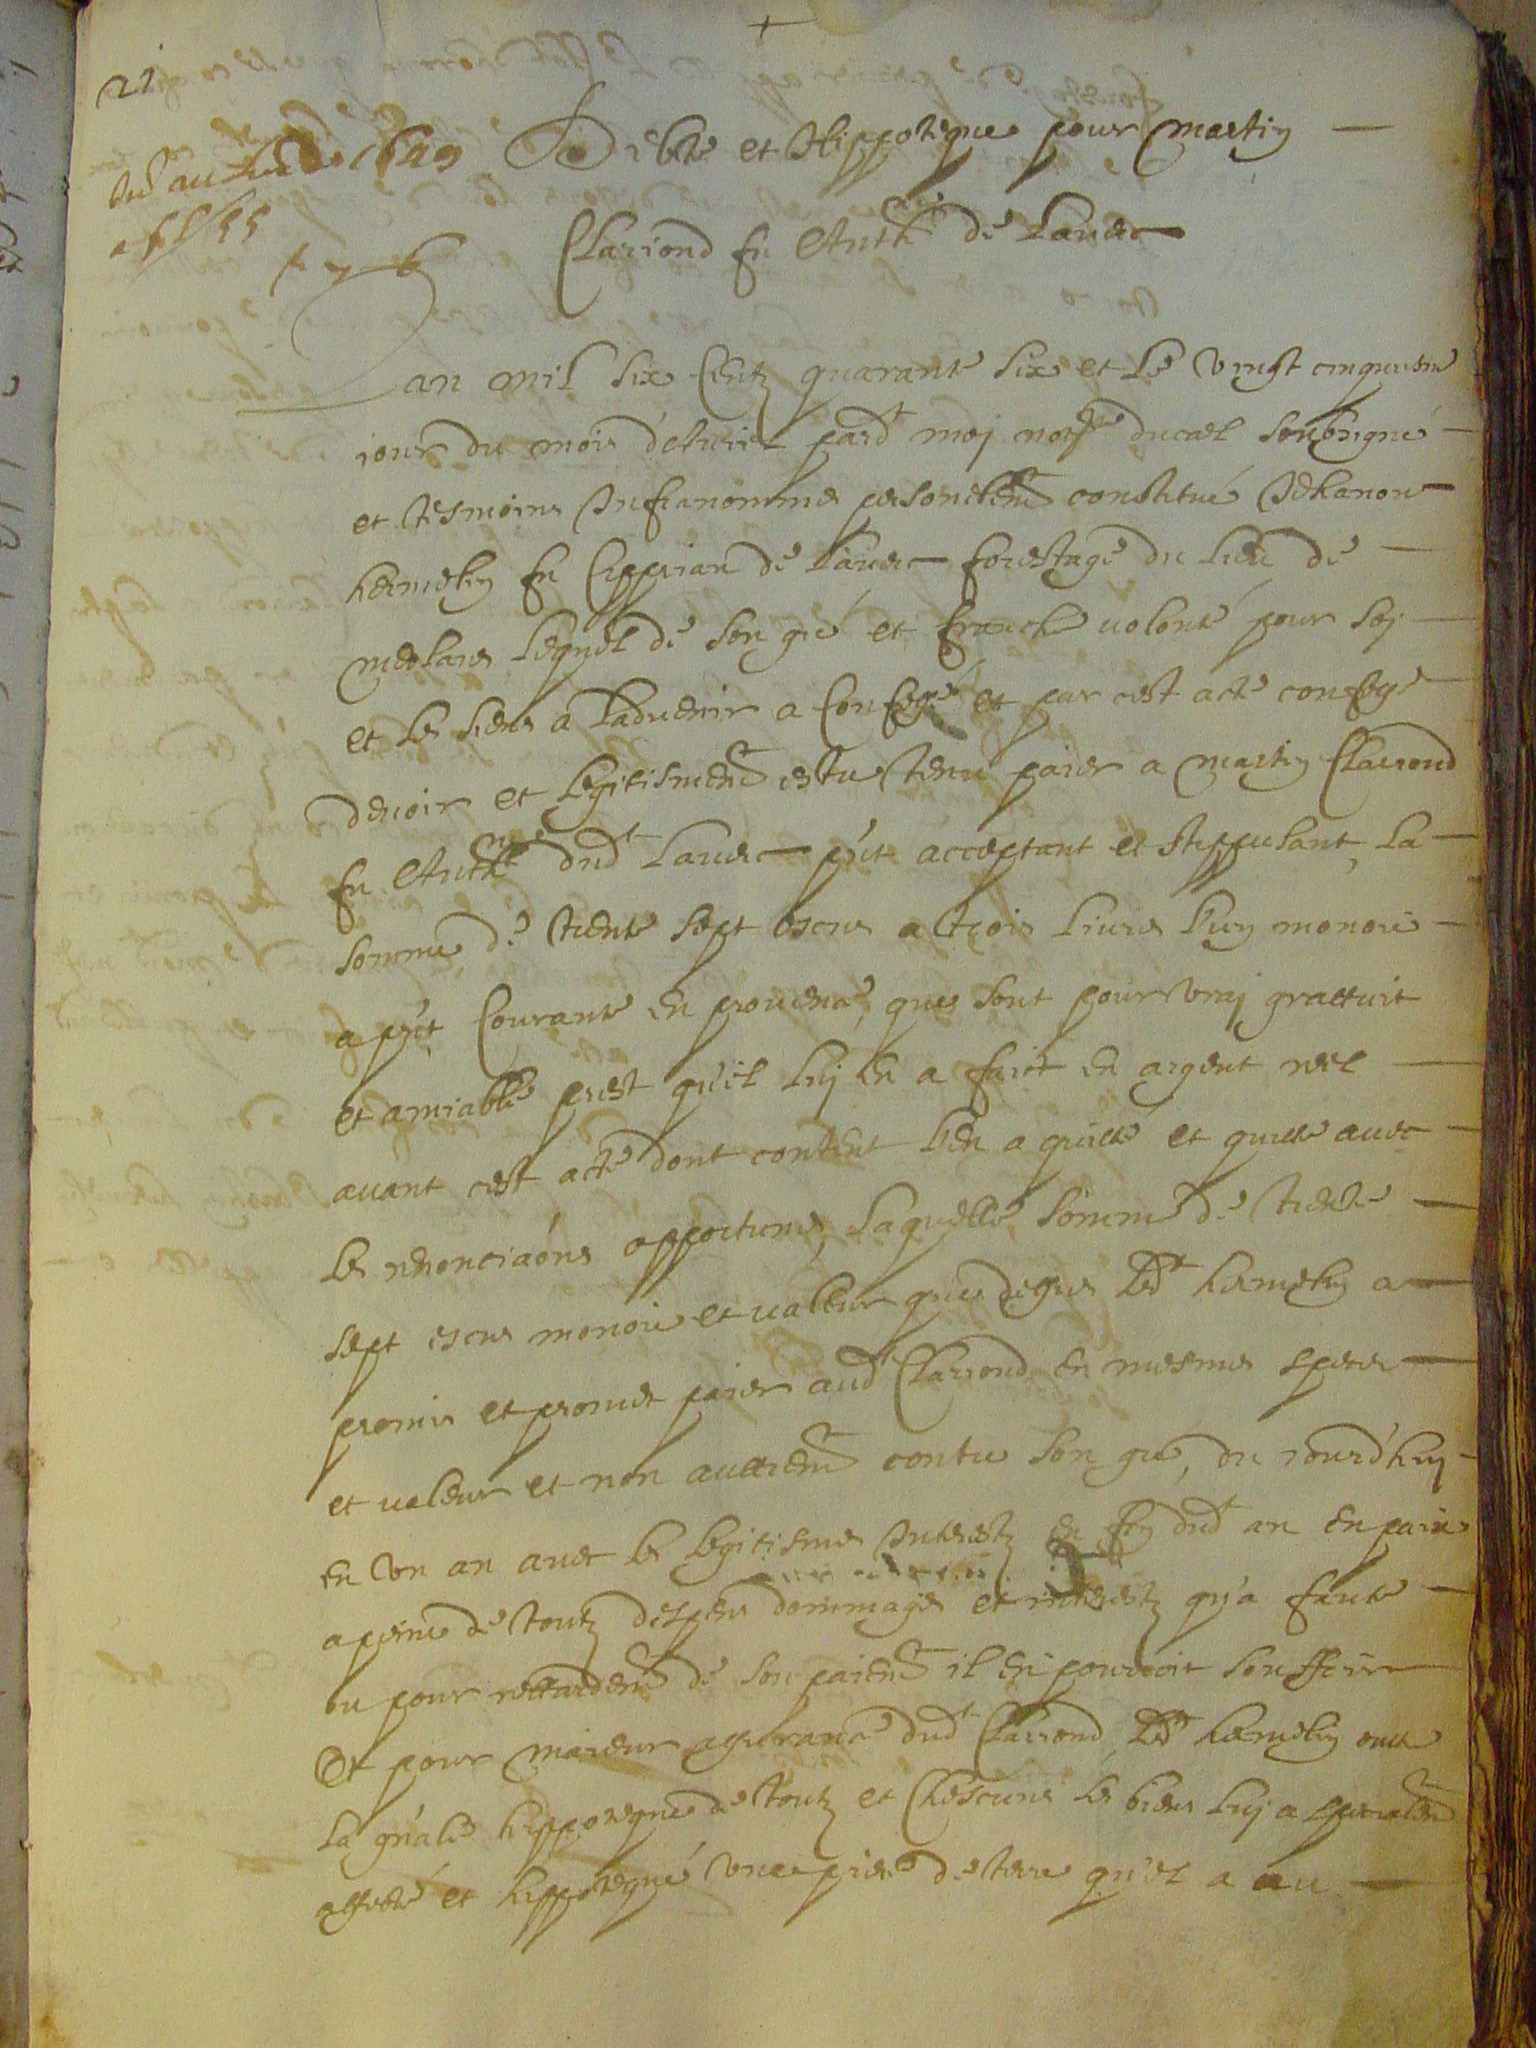 21
1649 Debte et Hippoteque pour Martin
Clariond fu Anth.e de Lauerc
Lan mil six Centz quarante six et le vingt cinquiesme
iour du mois d'Auril pard.t moj not.re ducal soubsigné
et tesmoins Infranommes personellem.t constitué
hermelin fu Cipprian de Lauerc forestage du lieu de
meolans lequel de son gré et franche uolonté pour soj
et les siens a laduenir a Confessé et par cest acte confesse
deuoir et legitismem.t estre tenu paier a martin Clariond
fu Anth.e dud.t Lauerc p'nt acceptant et stippulant, la
somme de trente sept escus a trois liures l'un monoie
a p'nt Courante en prouence, que sont pour vraj grattuit
et amiable prest qu'il luj en a faict en argent reel
auant cest acte dont content l'en a quitté et quitte auec
les renonciaóns opportunes, laquelle somme de trente
sept escus monoie et ualleur que dessus led.t hermelin a
promis et promet paier aud.t Clariond en mesmes speces
et ualeur et non aultrem.t contre son gre, du iourd'huy
en vn an auec les legitismes Interestz en fin dud.t an en paix
a peine de toutz despens dommages et interestz qu'a faute
ou pour rettardem.t de son paiem.t il en pourroit souffrir
Et pour maieur asseurance dud.t Clariond, led.t hermelin oultre
la g'nale hippoteque de toutz et Chescuns les biens luj a specialem.t
affecté et hippotequé vne piece de terre qu'il a au